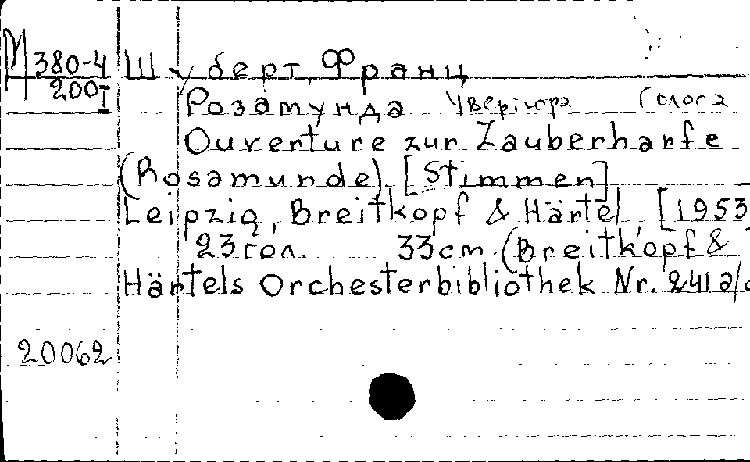 М 380-4 Шуберт, Франц
200 I
Розамунда Увертюра Голоса
Ouverture zur Zauberharfe
(Rosamunde). [Stimmen]
Leipzig, Breitkopf & Härtel, [1953
23 гол. 33 cm (Breitkopf &
Härtels Orchesterbibliothek Nr. 241 a/c
20062